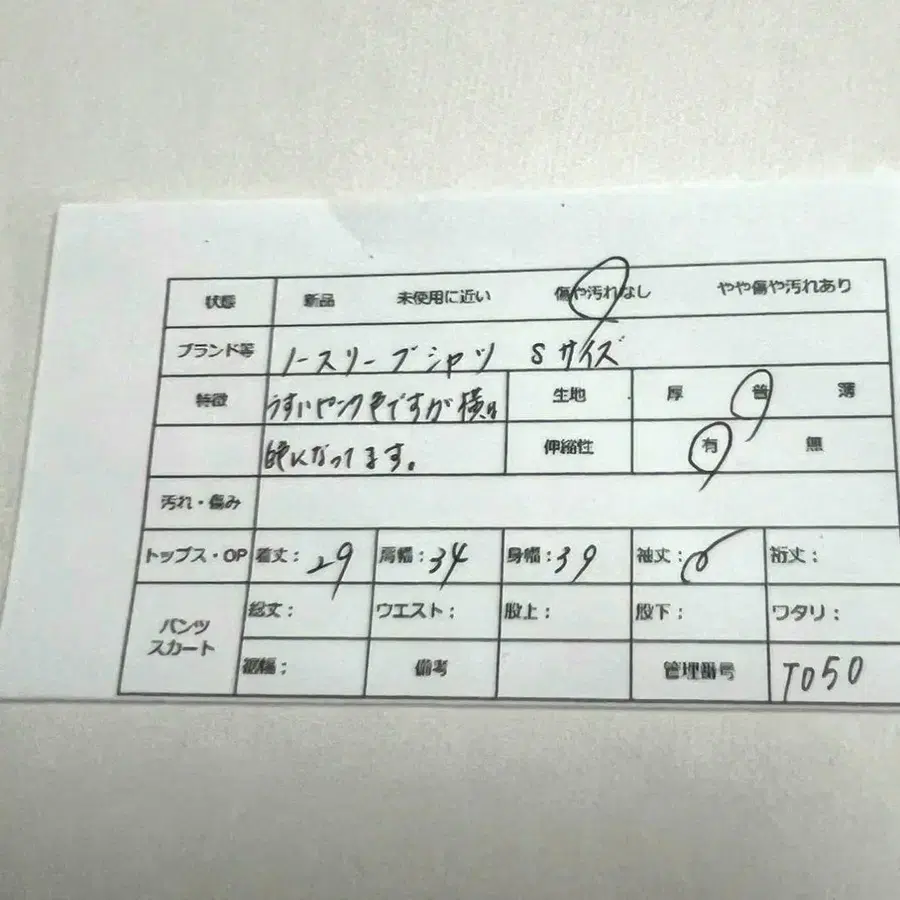 状態 新品 未使用に近い 傷や汚れなし やや傷や汚れあり
ブランド等 ノースリーブシャツ Sサイズ
特徴 うすいピンク色ですが横は 生地 厚 普 薄
白になってます。 伸縮性 有 無
汚れ・傷み
トップス・OP 着丈:29 肩幅:34 身幅:39 袖丈:0 裄丈:
パンツ 総丈: ウエスト: 股上: 股下: ワタリ:
スカート 裾幅: 備考 管理番号 T050